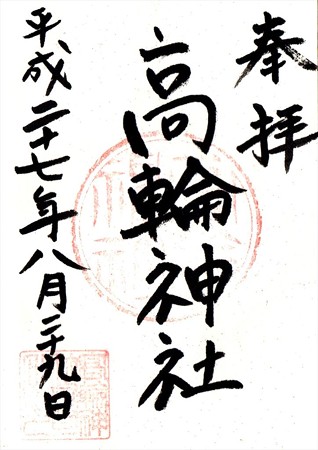 奉拝
高輪神社
平成二十七年八月二十九日